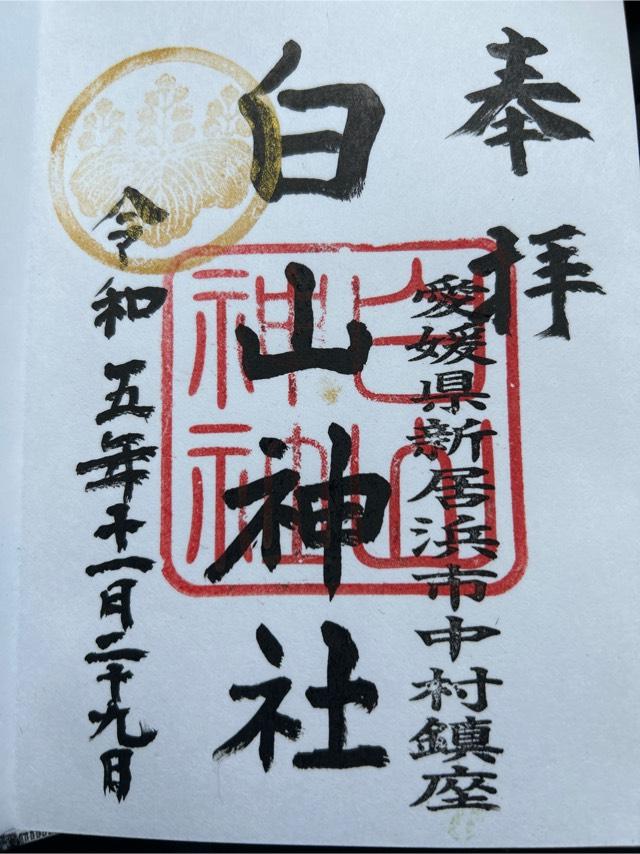 奉拝
愛媛県新居浜市中村鎮座
白山神社
白山
神社
令和五年十一月二十九日